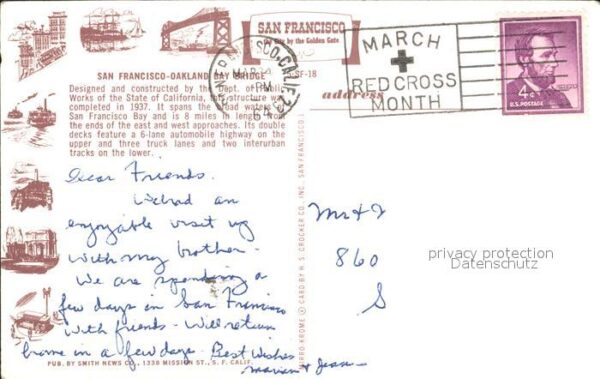 SAN FRANCISCO
by the Golden Gate
SF-18
MARCH
RED CROSS
MONTH
4¢
U.S. POSTAGE
SAN FRANCISCO-OAKLAND BAY BRIDGE
Designed and constructed by the Dept. of Public
Works of the State of California, this structure was
completed in 1937. It spans the road waters of
San Francisco Bay and is 8 miles in length from
the ends of the east and west approaches. Its double
decks feature a 6-lane automobile highway on the
upper and three truck lanes and two interurban
tracks on the lower.
address
Dear Friends.
We had an
enjoyable visit
with my brother.
We are spending a
few days in San Francisco
with friends. Will return
home in a few days. Best Wishes
Marian & Jesse
Mr &
860
S
privacy protection
Datenschutz
MIRRO-KROME ® CARD BY H. S. CROCKER CO., INC. SAN FRANCISCO 1
PUB. BY SMITH NEWS CO., 1338 MISSION ST., S. F. CALIF.